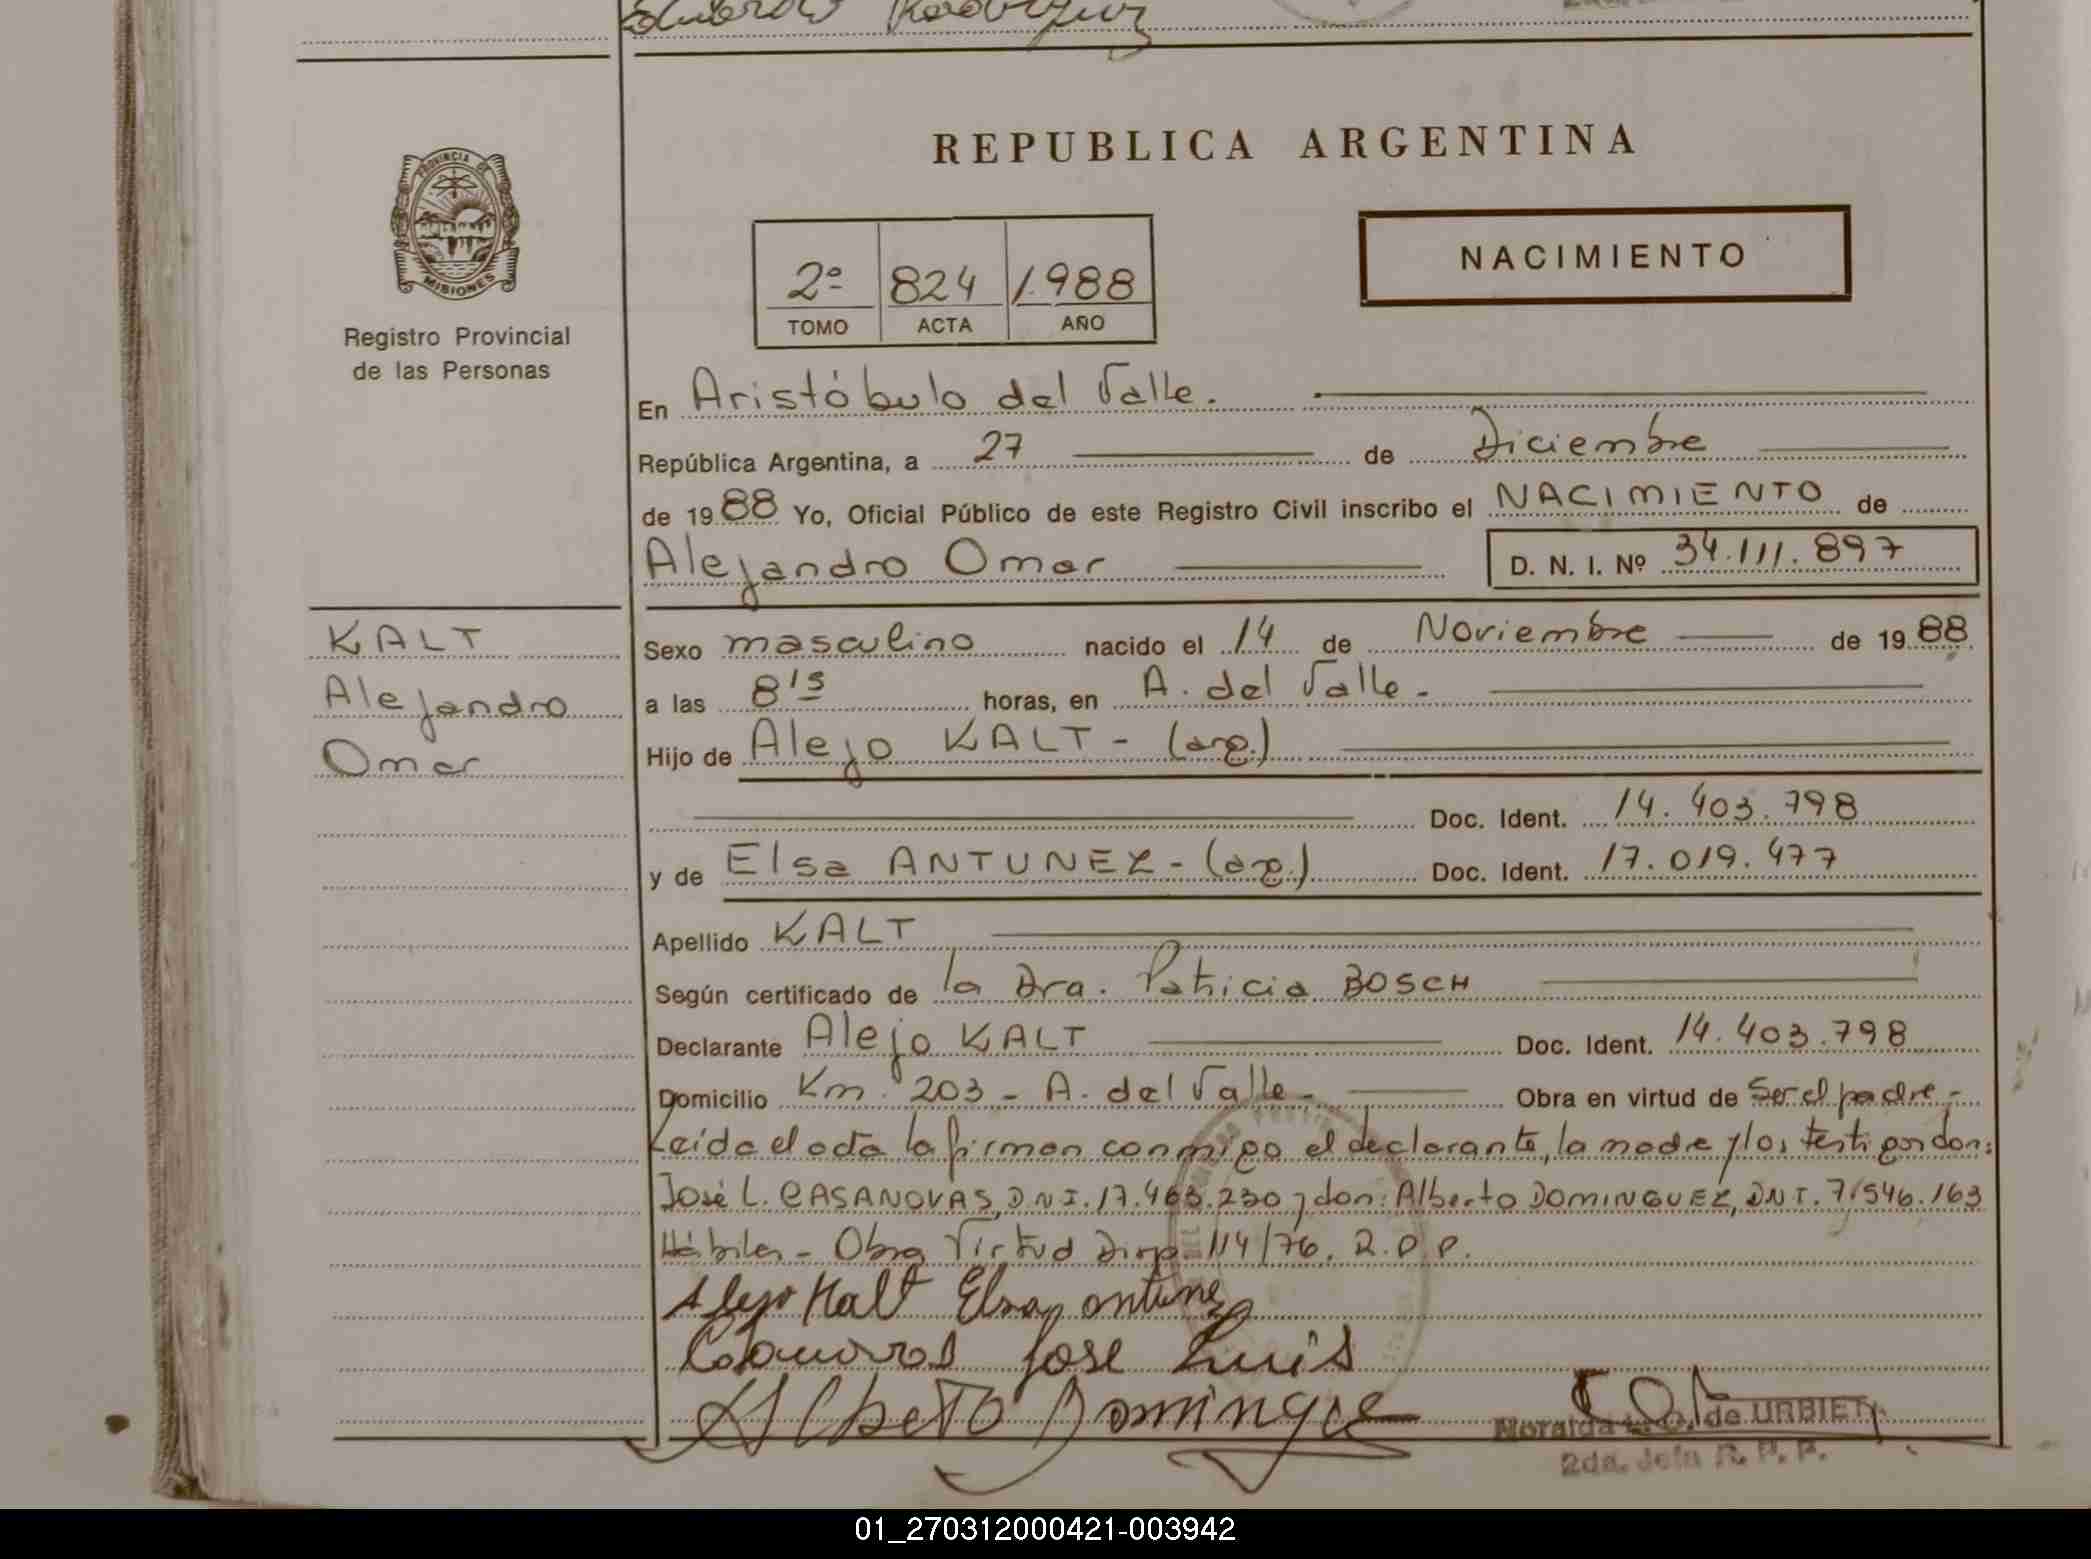 REPUBLICA ARGENTINA
PROVINCIA DE
MISIONES
Registro Provincial
de las Personas
NACIMIENTO
2º 824 1.988
TOMO ACTA AÑO
En Aristóbulo del Valle.
República Argentina, a 27 de Diciembre
de 1988 Yo, Oficial Público de este Registro Civil inscribo el NACIMIENTO de
Alejandro Omar D. N. I. Nº 34.111.897
KALT
Alejandro
Omar
Sexo masculino nacido el 14 de Noviembre de 1988
a las 8'15 horas, en A. del Valle.
Hijo de Alejo KALT - (arg.)
Doc. Ident. 14.403.798
y de Elsa ANTUNEZ - (arg.) Doc. Ident. 17.019.477
Apellido KALT
Según certificado de la Dra. Patricia BOSCH
Declarante Alejo KALT Doc. Ident. 14.403.798
Domicilio Km. 203 - A. del Valle - Obra en virtud de Ser el padre -
Leída el acta la firman conmigo el declarante, la madre y los testigos don:
José L. CASANOVAS, D.N.I. 17.463.230 y don: Alberto DOMINGUEZ, D.N.I. 7.546.163
Hábiles - Obra Virtud Disp. 114/76. R.P.P.
Alejo Kalt Elsa antunez
Jose Luis
Alberto Domingue
de URBIETA
2da. Jefa R. P. P.
01_270312000421-003942